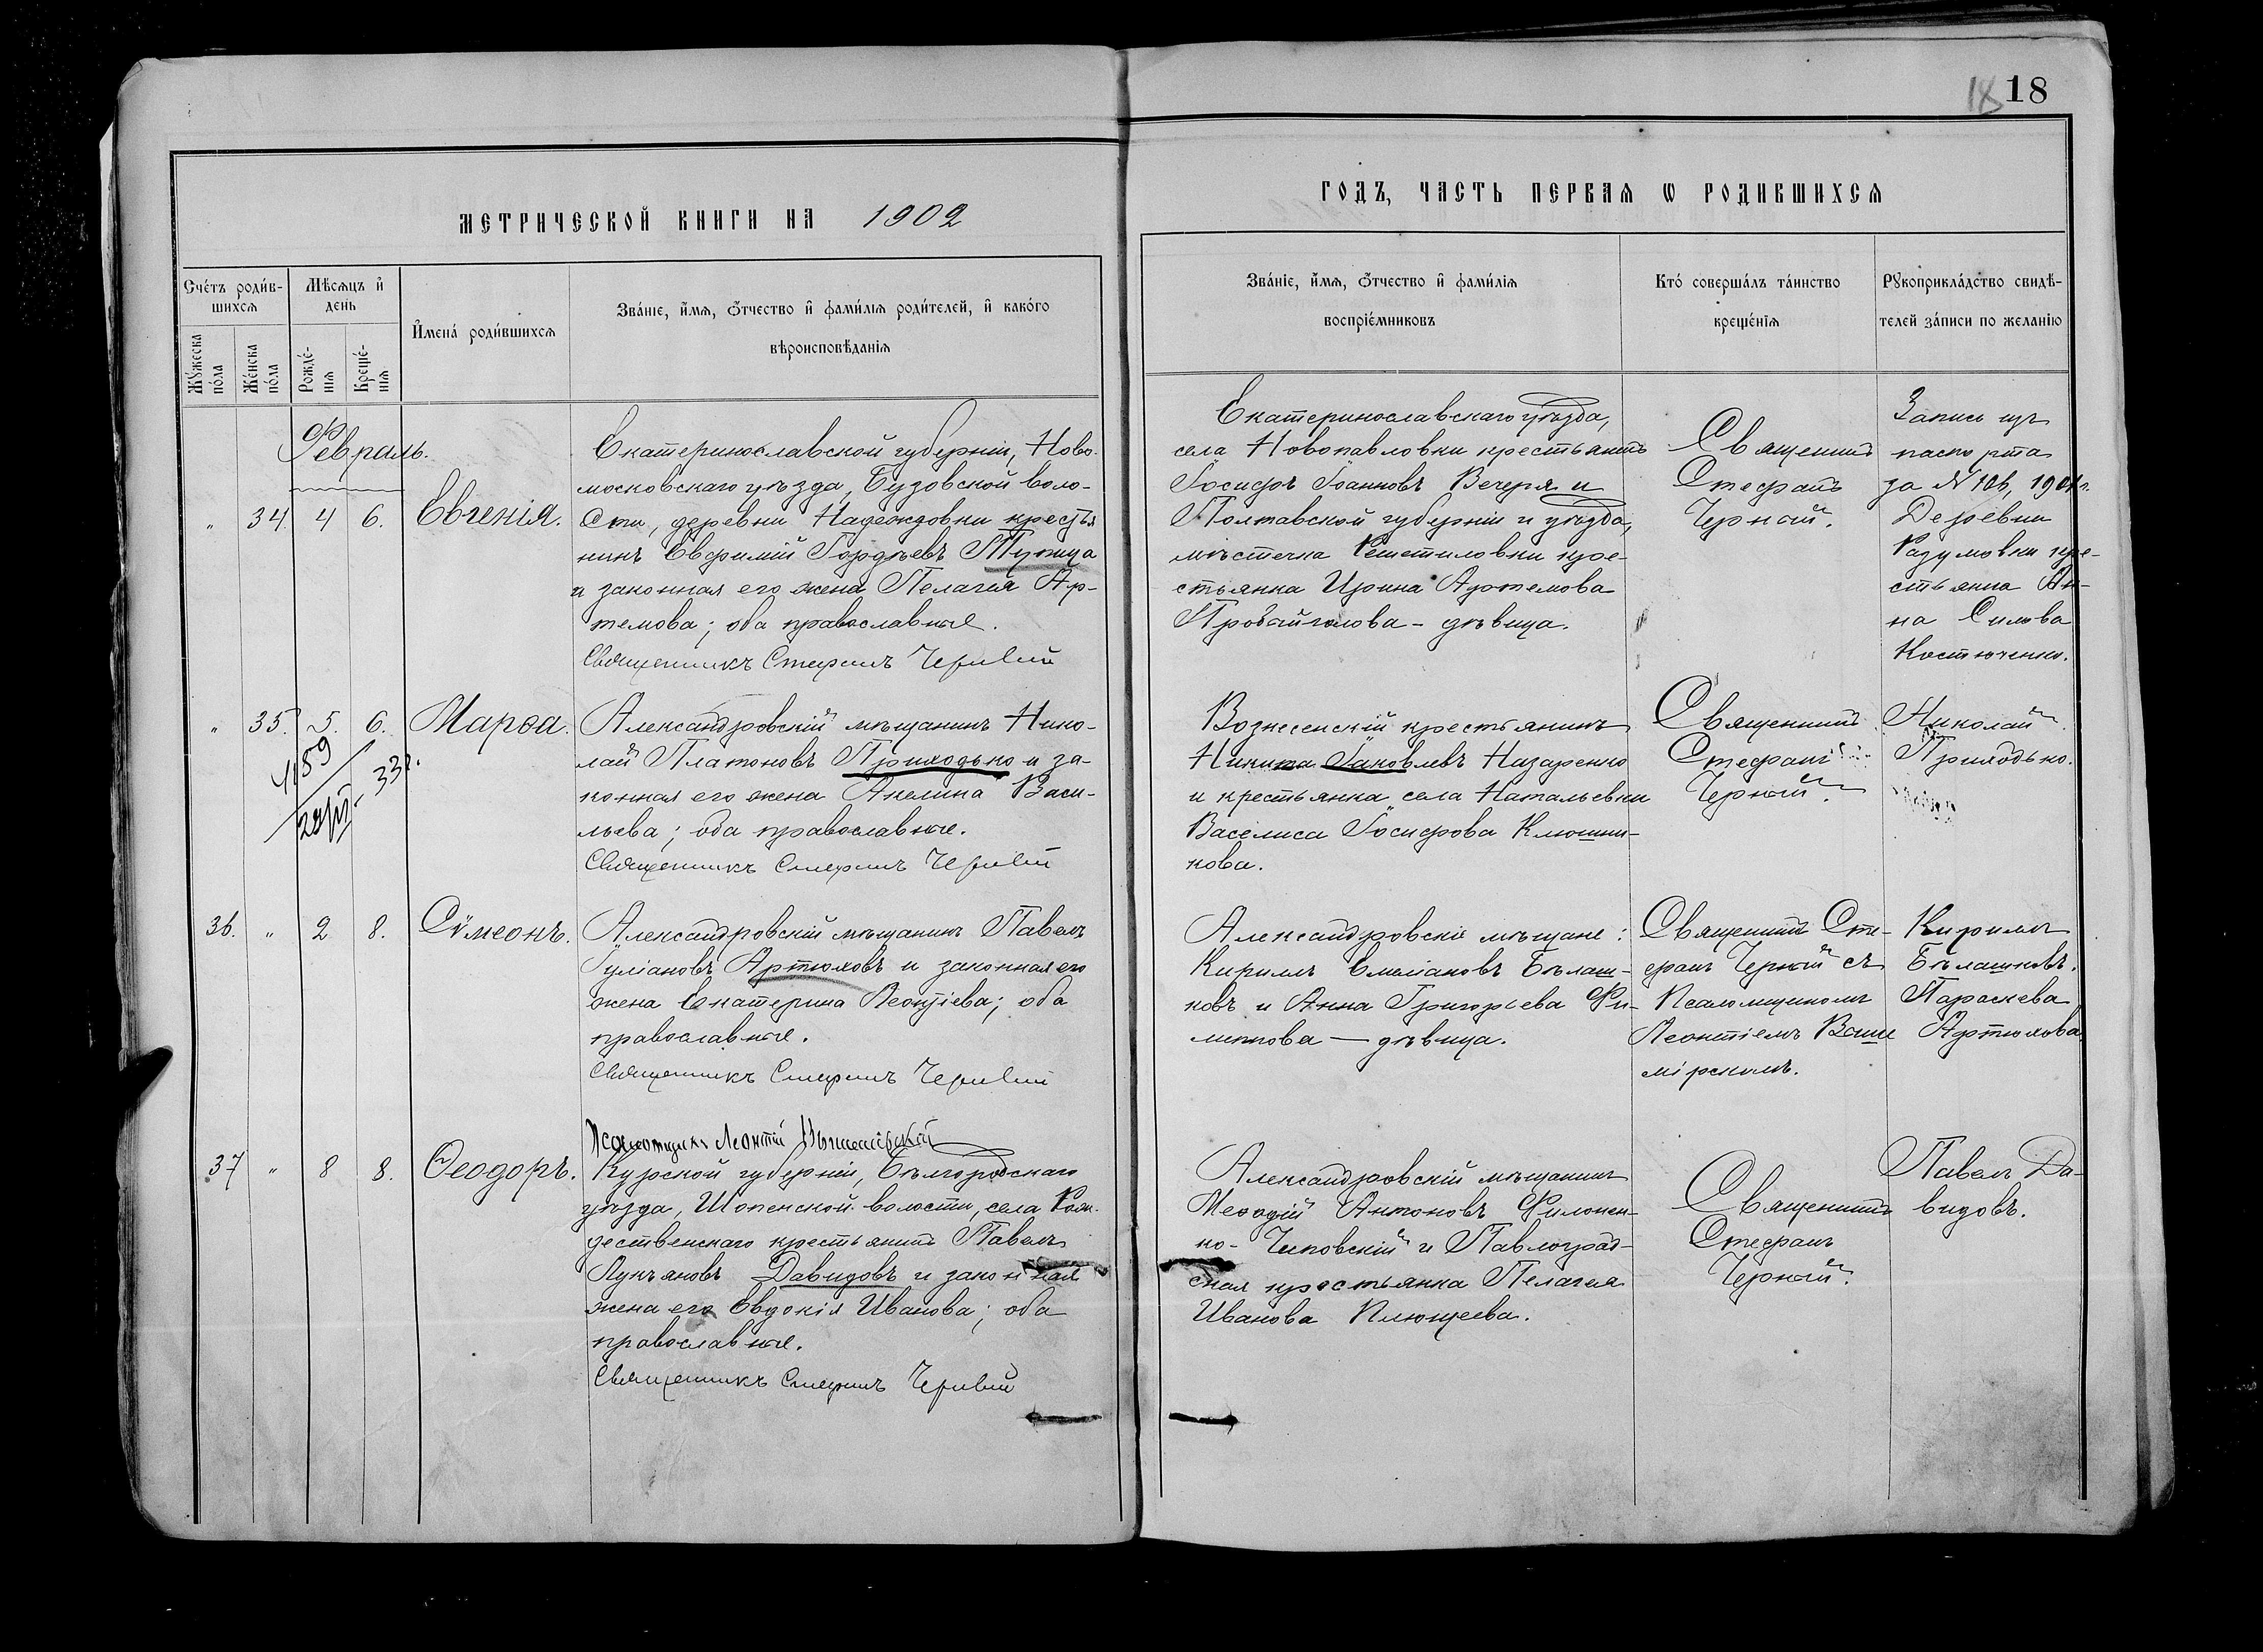 18 18
МЕТРИЧЕСКОЙ КНИГИ НА 1902
ГОДЪ, ЧАСТЬ ПЕРВАЯ Ѡ РОДИВШИХСЯ
Счетъ родив-
шихся
Мужеска
пола
Женска
пола
Мѣсяцъ и
день
Рожде-
нія
Креще-
нія
Имена родившихся
Званіе, имя, отчество и фамилія родителей, и какого
вѣроисповѣданія
Званіе, имя, отчество и фамилія
воспріемниковъ
Кто совершалъ таинство
крещенія
Рукоприкладство свидѣ-
телей записи по желанію
Февраль.
" 34. 4 6. Евгенія.
Екатеринославской губерніи, Ново-
московскаго уѣзда, Бузовской воло-
сти, деревни Надеждовки крестья
нинъ Евфимій Гордѣевъ
и законная его жена Пелагея Ар-
темова; оба православные.
Священникъ Стефанъ Черный
Екатеринославскаго уѣзда,
села Новопавловки крестьянинъ
Іосифъ Іоанновъ Вечеря и
Полтавской губерніи и уѣзда,
мѣстечка Решетиловки кре-
стьянка Ирина Артемова
Пробайголова - дѣвица.
Священникъ
Стефанъ
Черный.
Запись изъ
паспорта
за № 104, 1901 г.
Деревни
Разумовки кре-
стьянка Ан-
на Силова
Костюченко.
" 35. 5. 6. Марѳа.
4159
33 г.
Александровскій мѣщанинъ Нико-
лай Платоновъ Приходько и за-
конная его жена Акелина Васи-
льева; оба православные.
Священникъ Стефанъ Черный
Вознесенскій крестьянинъ
Никита Іаковлевъ Назаренко
и крестьянка села Натальевки
Василиса Іосифова Клюшни-
кова.
Священникъ
Стефанъ
Черный.
Николай
Приходько.
36. " 2 8. Сѵмеонъ.
Александровскій мѣщанинъ Павелъ
Іуліановъ Артюховъ и законная его
жена Екатерина Леонтіева; оба
православные.
Священникъ Стефанъ Черный
Псаломщикъ Леонтій Вышемірскій
Александровскіе мѣщане:
Кириллъ Емеліановъ Бѣлаш-
ковъ и Анна Григорьева Фи-
липпова — дѣвица.
Священникъ Сте-
фанъ Черный съ
Псаломщикомъ
Леонтіемъ Выше
мірскимъ.
Кириллъ
Бѣлашковъ.
Параскева
Артюхова
37 " 8 8. Ѳеодоръ.
Курской губерніи, Бѣлгородскаго
уѣзда, Шопенской волости, села Рож-
дественскаго крестьянинъ Павелъ
Лукьяновъ Давидовъ и законная
жена его Евдокія Иванова; оба
православные.
Священникъ Стефанъ Черный
Александровскій мѣщанинъ
Меѳодій Антоновъ Филонен-
ко- и Павлоград-
ская крестьянка Пелагея
Иванова Клющеева.
Священникъ
Стефанъ
Черный.
Павелъ Да-
видовъ.